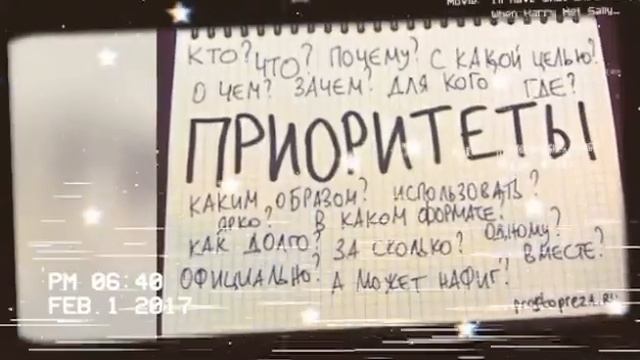 When Harry Met Sally…
КТО? ЧТО? ПОЧЕМУ? С КАКОЙ ЦЕЛЬЮ?
О ЧЕМ? ЗАЧЕМ? ДЛЯ КОГО ГДЕ?
ПРИОРИТЕТЫ
КАКИМ ОБРАЗОМ? ИСПОЛЬЗОВАТЬ?
ЯРКО? В КАКОМ ФОРМАТЕ?
КАК ДОЛГО? ЗА СКОЛЬКО? ОДНОМУ? ВМЕСТЕ?
ОФИЦИАЛЬНО? А МОЖЕТ НАФИГ?
prostopreza.ru
PM 06:40
FEB. 1 2017